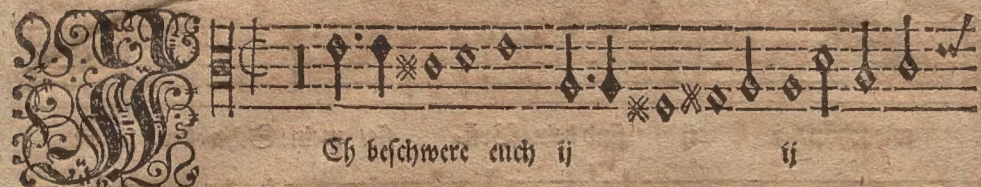 ICh beschwere euch ij ij